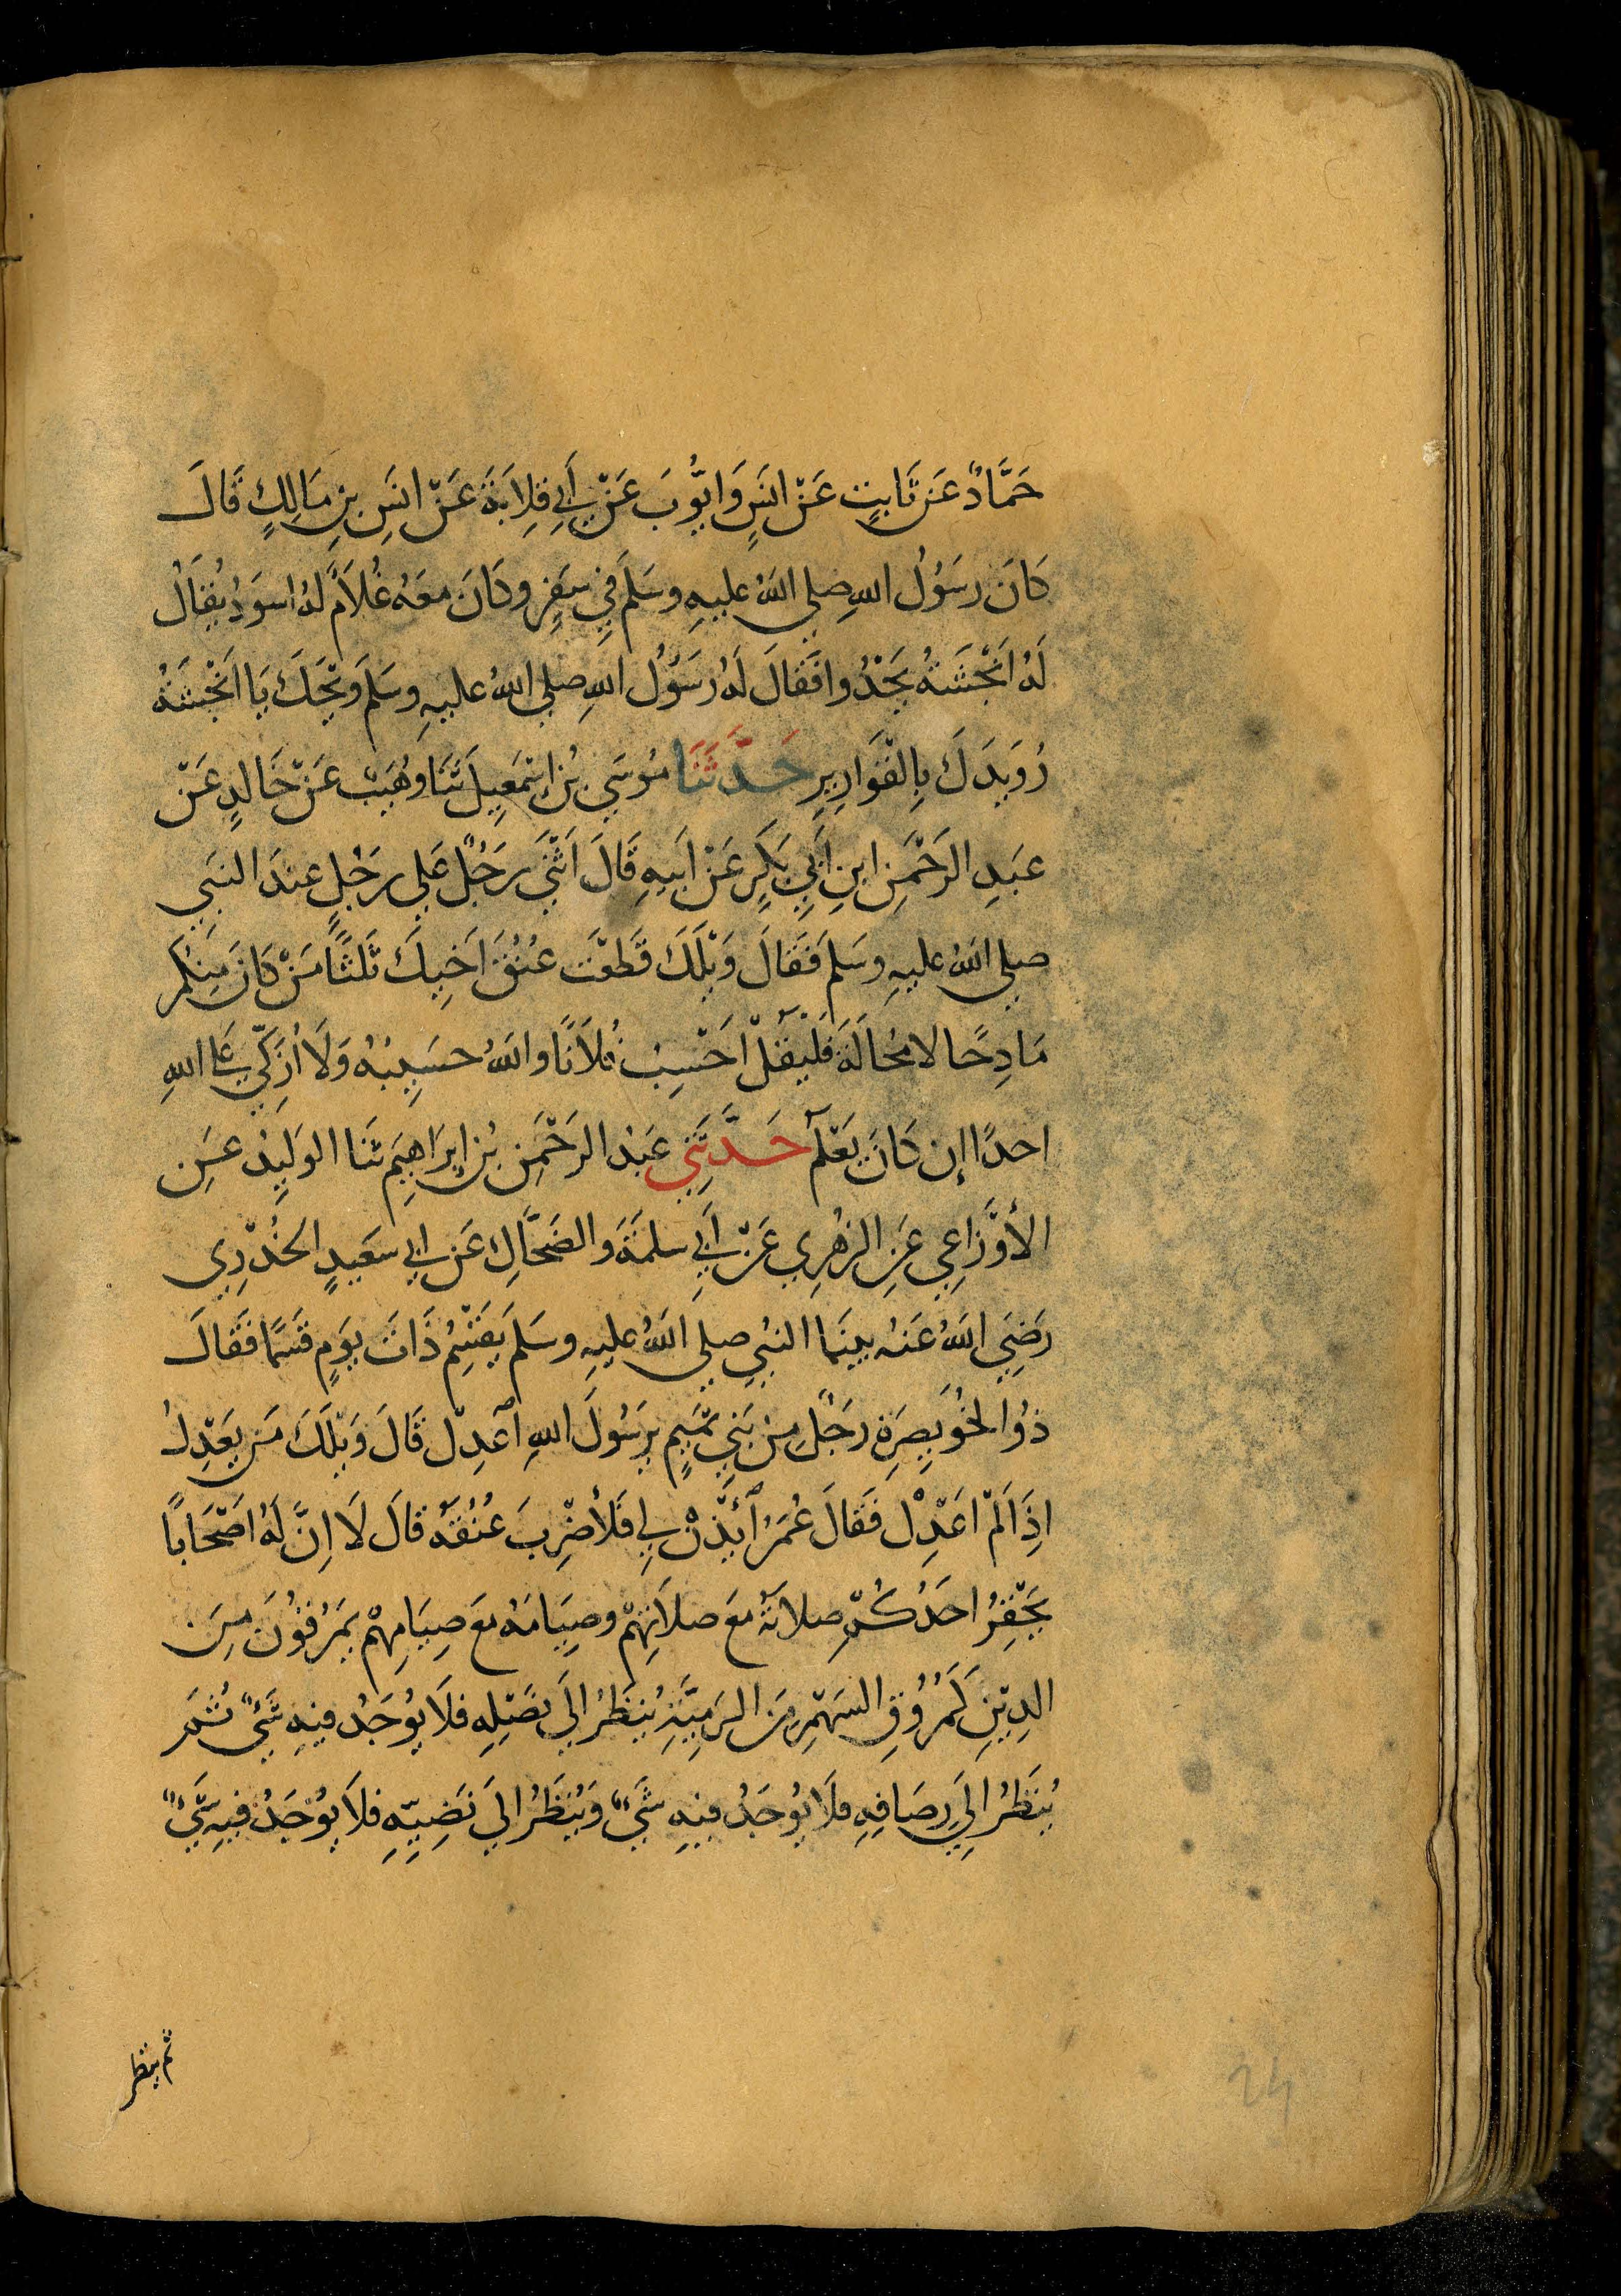 حَمَّادٌ عَن ثَابِتٍ عَنْ انَسٍ وَايُّوبَ عَنْ أَبِي قِلَابَةَ عَنْ انَسِ بنِ مَالِكٍ قَالَ
كَانَ رسَوُلُ اللهِ صلي اللهُ عليهِ وسَلمَ فِي سَفَرٍ وكَانَ معَهُ غُلَامٌ لهُ اسوَدُ يُقَالُ
لَهُ اَنْجَشَةُ يَحْدُوا فَقَالَ لَهُ رَسَوُلُ اللهِ صلي اللهُ عليهِ وسَلمَ وَيْحَكَ يَا اَنْجَشَةُ
رُوَيدَكَ بِالْقَوَارِيرِ حَدَّثَنَا مُوسَي بْنُ اِسْمَعِيلَ ثَنَا وهُيَبْ عَنْ خَالدٍ عَنْ
عبَدِ الرَحْمَنِ ابنِ اَبِي بَكَرٍ عَنْ اَبيهِ قَالَ اَثْنَي رَجُلٌ عَلي رجُلٍ عندَ النبَي
صلي اللهُ عليهِ وسَلمَ فَقَالَ وَيْلَكَ قَطَعْتَ عُنُقَ اَخِيكَ ثَلثًا مَنْ كَانَ مِنكُم
مَادِحًا لا مُحَالَةَ فَلْيَقُلْ اَحْسِبُ فُلَانًا واللهُ حسَيِبُهُ وَلَا اُزَكّي عَلي اللهِ
احدًا إن كَانَ يَعْلَمُ حَدَّثَنِي عَبْدُ الرَحْمَنِ بْنُ ابِرَاهِيمَ ثَنَا الوَلِيدْ عَنِ
الأوْزَاعِي عَنِ الزهُرِي عَنْ أَبِي سلمَةَ وَالضَحَّاكِ عَن ابي سعَيدٍ الخُدْرِي
رَضِيَ اللهُ عَنهُ بينَمَا النبُي صلي اللهُ عليهِ وسَلمَ يَقْسِمُ ذَاتَ يوَمٍ قَسْمًا فَقَالَ
ذوُ الخُوَيصِرَةِ رَجُلٌ مِنْ بَنِي تمَيمٍ يرَسُولَ اللهِ اعْدِلْ قَالَ وَيْلَكَ مَن يعَدْلُ
اذِا لَمْ اعَدْلِ فَقَالَ عُمَرُ ائْذَنْ لِي فَلأضْرِبَ عُنُقَهُ قَالَ لَا اِنَّ لَهُ اَصْحَاباً
يَحْقِرُ احَدُكُمْ صلاتَهُ مَعَ صلَاتِهِمْ وصِيَامَهُ مَعَ صِيَامِهِمْ يمَرُقوُنَ مِنَ
الدِيْنِ كَمُرُوُقِ السَهْمِ مِنَ الرَمِيَّةِ يُنظَرُ الَي نَصْلِهِ فلَا يُوجَدُ فيهِ شَيْءٌ ثُمَّ
يُنظَرُ الِي رصَافِهِ فلَا يوُجَدُ فيهِ شَيْءٌ وَيُنظَرُ الَي نَضِيِّهِ فِلَا يوُجَدُ فيهِ شَيْءٌ
ثم ينظر
24